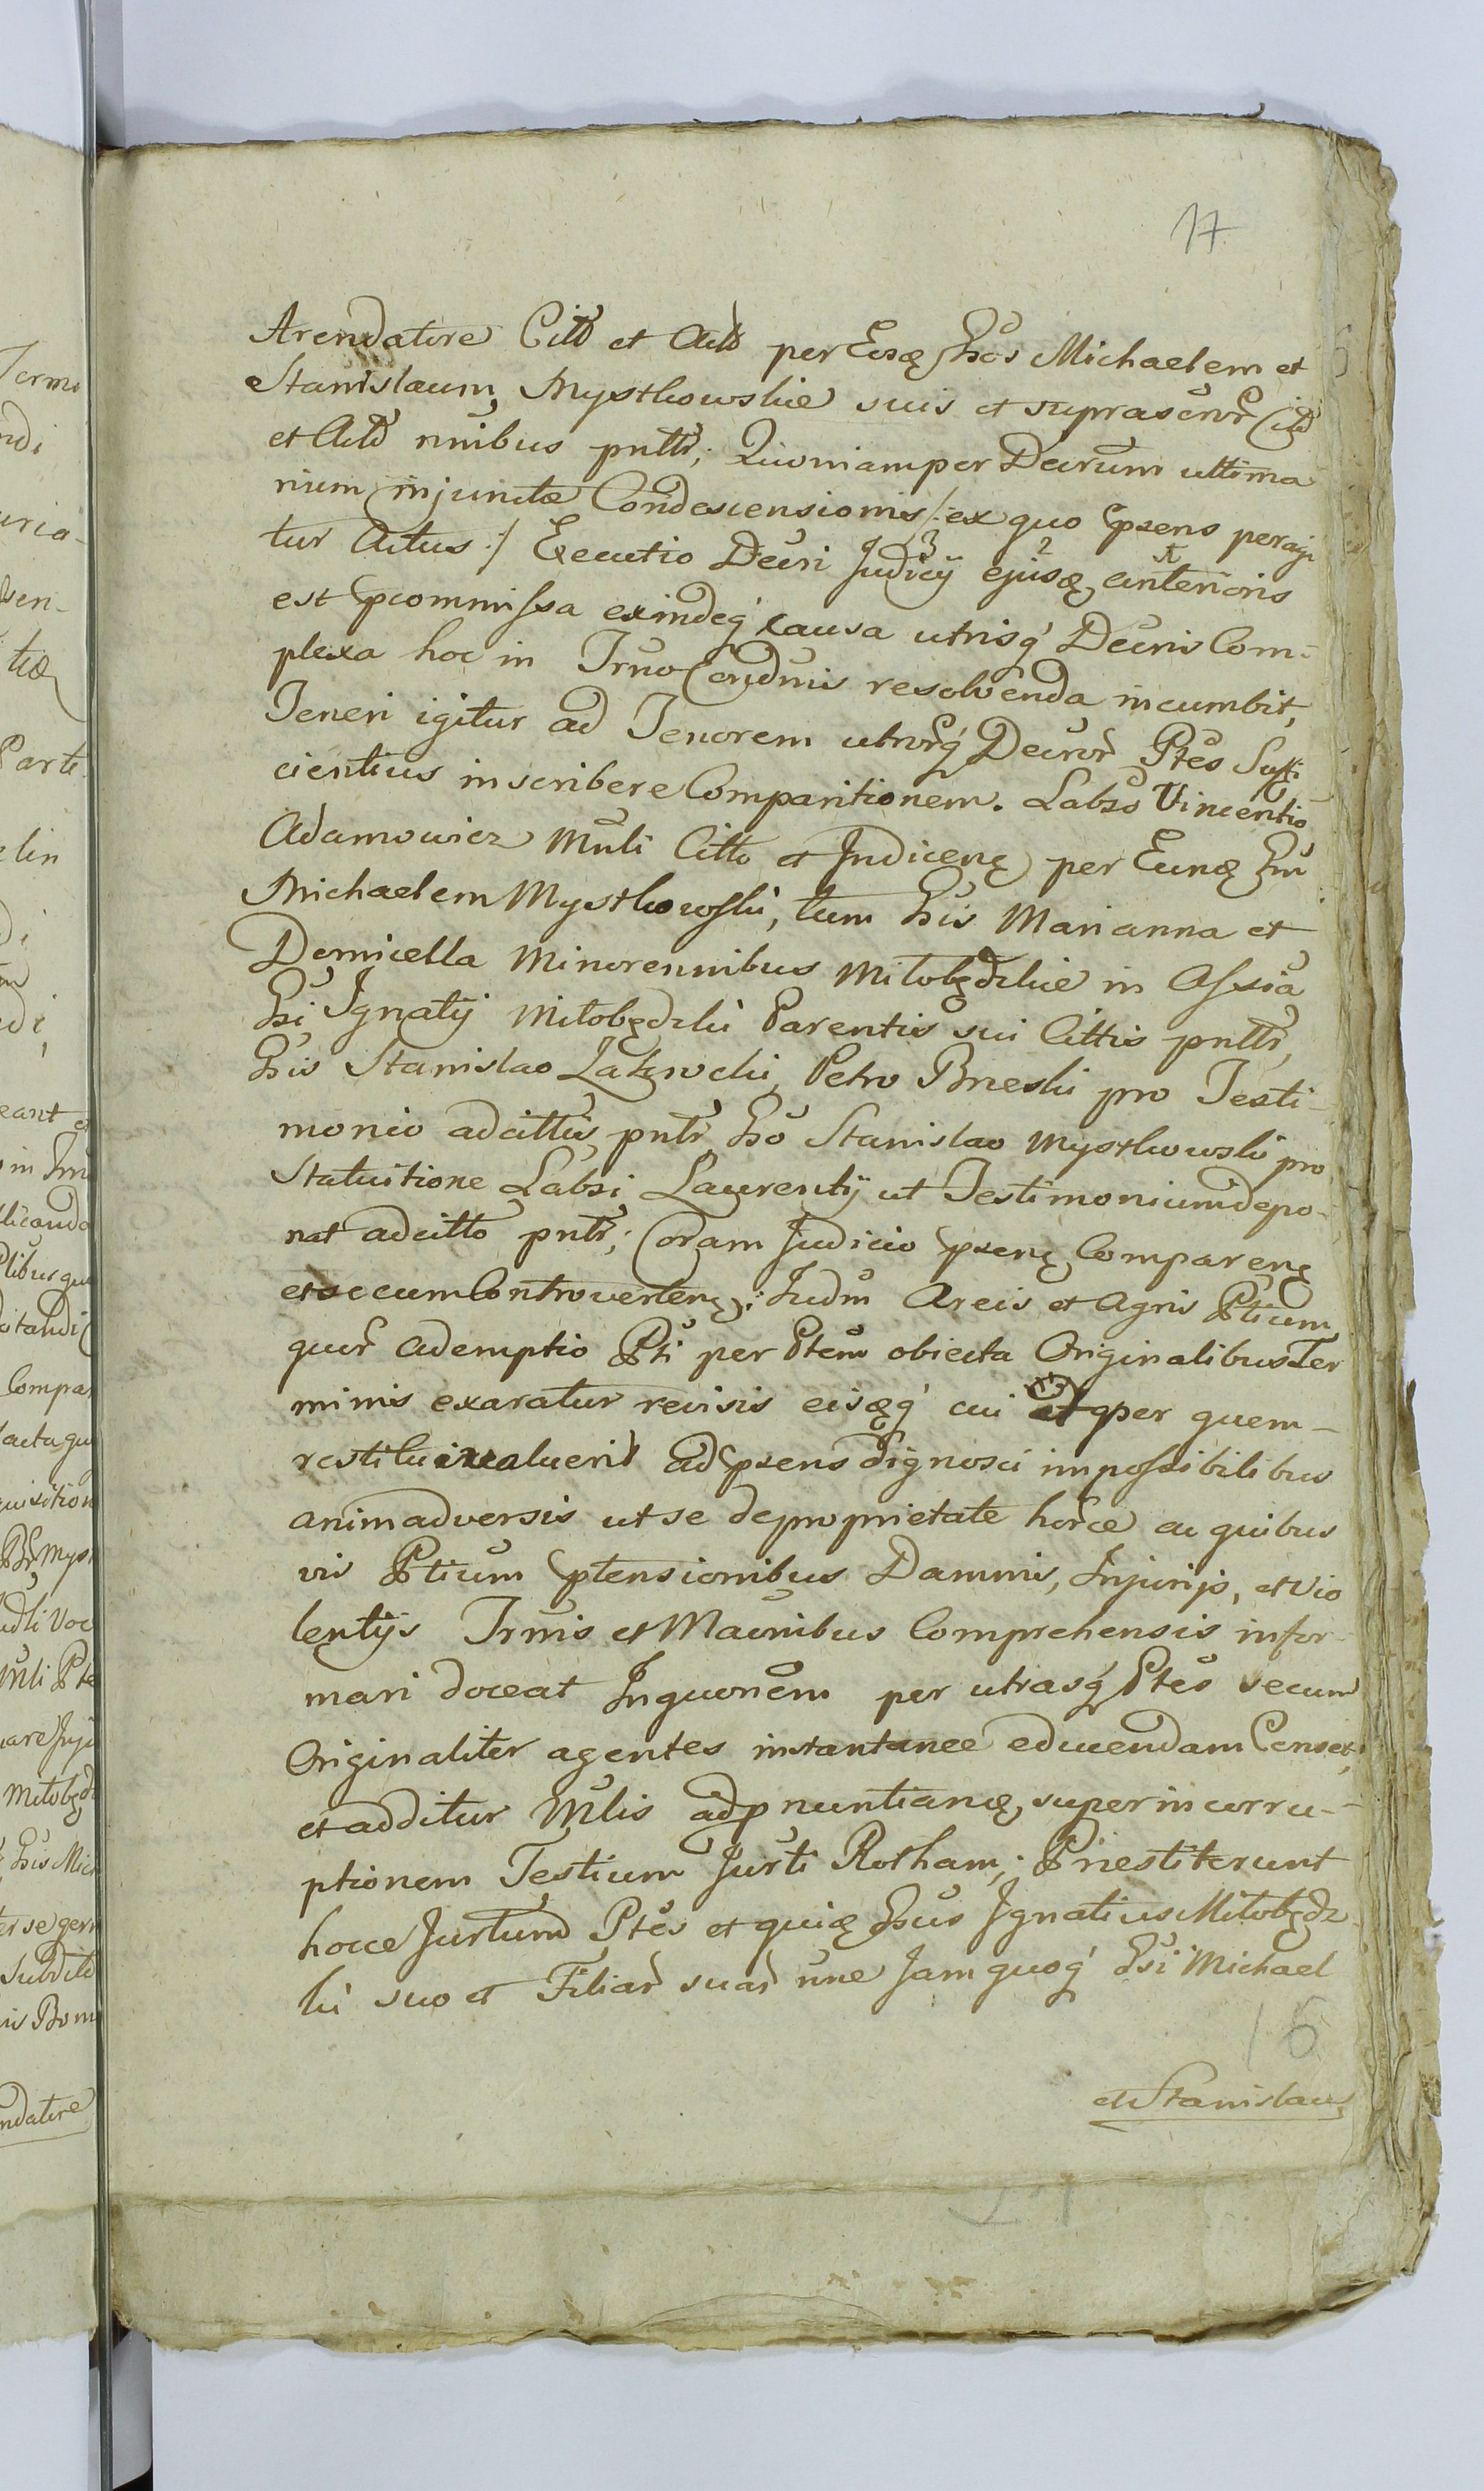 17
Arendatore Citt et Actt per Eosq Gsos Michaelem et
Stanislaum Mystkowskie suis et suprascror Citt
et Actt nnibus pntti; Quoniam per Decrum ultima
rium injunctæ Condescensionis /: ex quo psens peragi
tur Actus :/ Executio Decri Judicij ejusq anterioris
est pcommissa exindeq causa utrisq Decris Com=
plexa hoc in Trno Condnis resolvenda incumbit,
Teneri igitur ad Tenorem utrorq Decror Ptes Suffi
cientius inscribere Comparitionem. Labso Vincentio
Adamowicz Mnli Citto et Judicenq per Eunq Gsm
Michaelem Mystkowski, tum Gsis Marianna et
Domicella Minorennibus Miłobędzkie in Assia
Gsi Ignatij Miłobędzki Parentis sui Cittis pntti,
Gsis Stanislao Zakrwcki, Petro Brzeski pro Testi-
monio adcittis pntti Gso Stanislao Mystkowski pro
Statuitione Labsi Laurentij ut Testimonium depo-
nat adcitto pntti; Coram Judicio psenq Comparenq
et secum Controvertenq: Judm Areis et Agris Ptium
quor ademptio Pti per Ptem obiecta Originalibus Ter
minis exaratur revisis eisqq cui et qper quem-
restitui valuerit ad psens dignosci impossibilibus
animadversis ut se de proprietate horce ac quibus
vis Ptium ptensionibus Damnis, Injurijs, et Vio
lentijs Trnis et Macnibus Comprehensis infor-
mari doceat Inquonem per utrasq Ptes secum
Originaliter agentes instantanee educendam Censet,
et additur Mnlis adp nuntianq super incorru-
ptionem Testium Jurti Rotham; Priestiterunt
hocce Jurtum Ptes et quiq Gsus Ignatius Miłobędz
ki suo et Filiar suar nne Jam quoq Gsi Michael
16
et Stanislaus